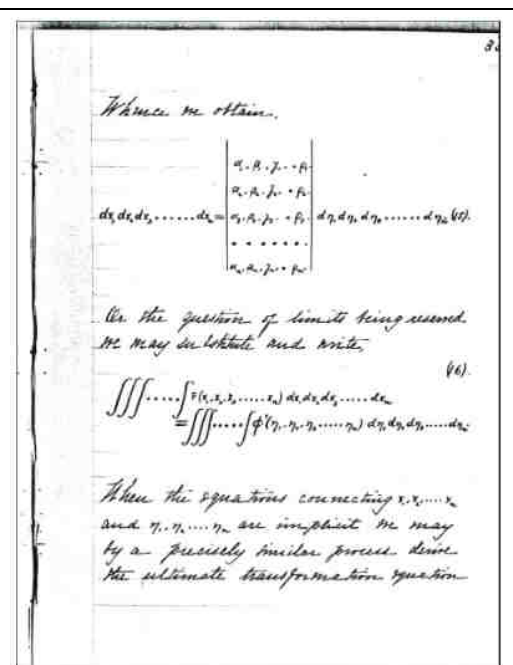 3
Whence we obtain.
α₁. β₁. γ₁. · ρ₁.
α₂. β₂. γ₂. · ρ₂.
dx₁ dx₂ dx₃ ...... dxₙ = α₃. β₃. γ₃. · ρ₃. dη₁ dη₂ dη₃ ...... dηₙ (45).
. . . . . .
αₙ. βₙ. γₙ. · ρₙ.
Or the question of limits being reserved
we may substitute and write,
(46).
∫∫∫ ..... ∫ F(x₁. x₂. x₃ ..... xₙ) dx₁ dx₂ dx₃ ..... dxₙ
= ∫∫∫ ..... ∫ φ'(η₁. η₂. η₃ ..... ηₙ) dη₁ dη₂ dη₃ ..... dηₙ.
When the equations connecting x₁. x₂ ..... xₙ
and η₁. η₂ ..... ηₙ are implicit we may
by a precisely similar process derive
the ultimate transformation equation